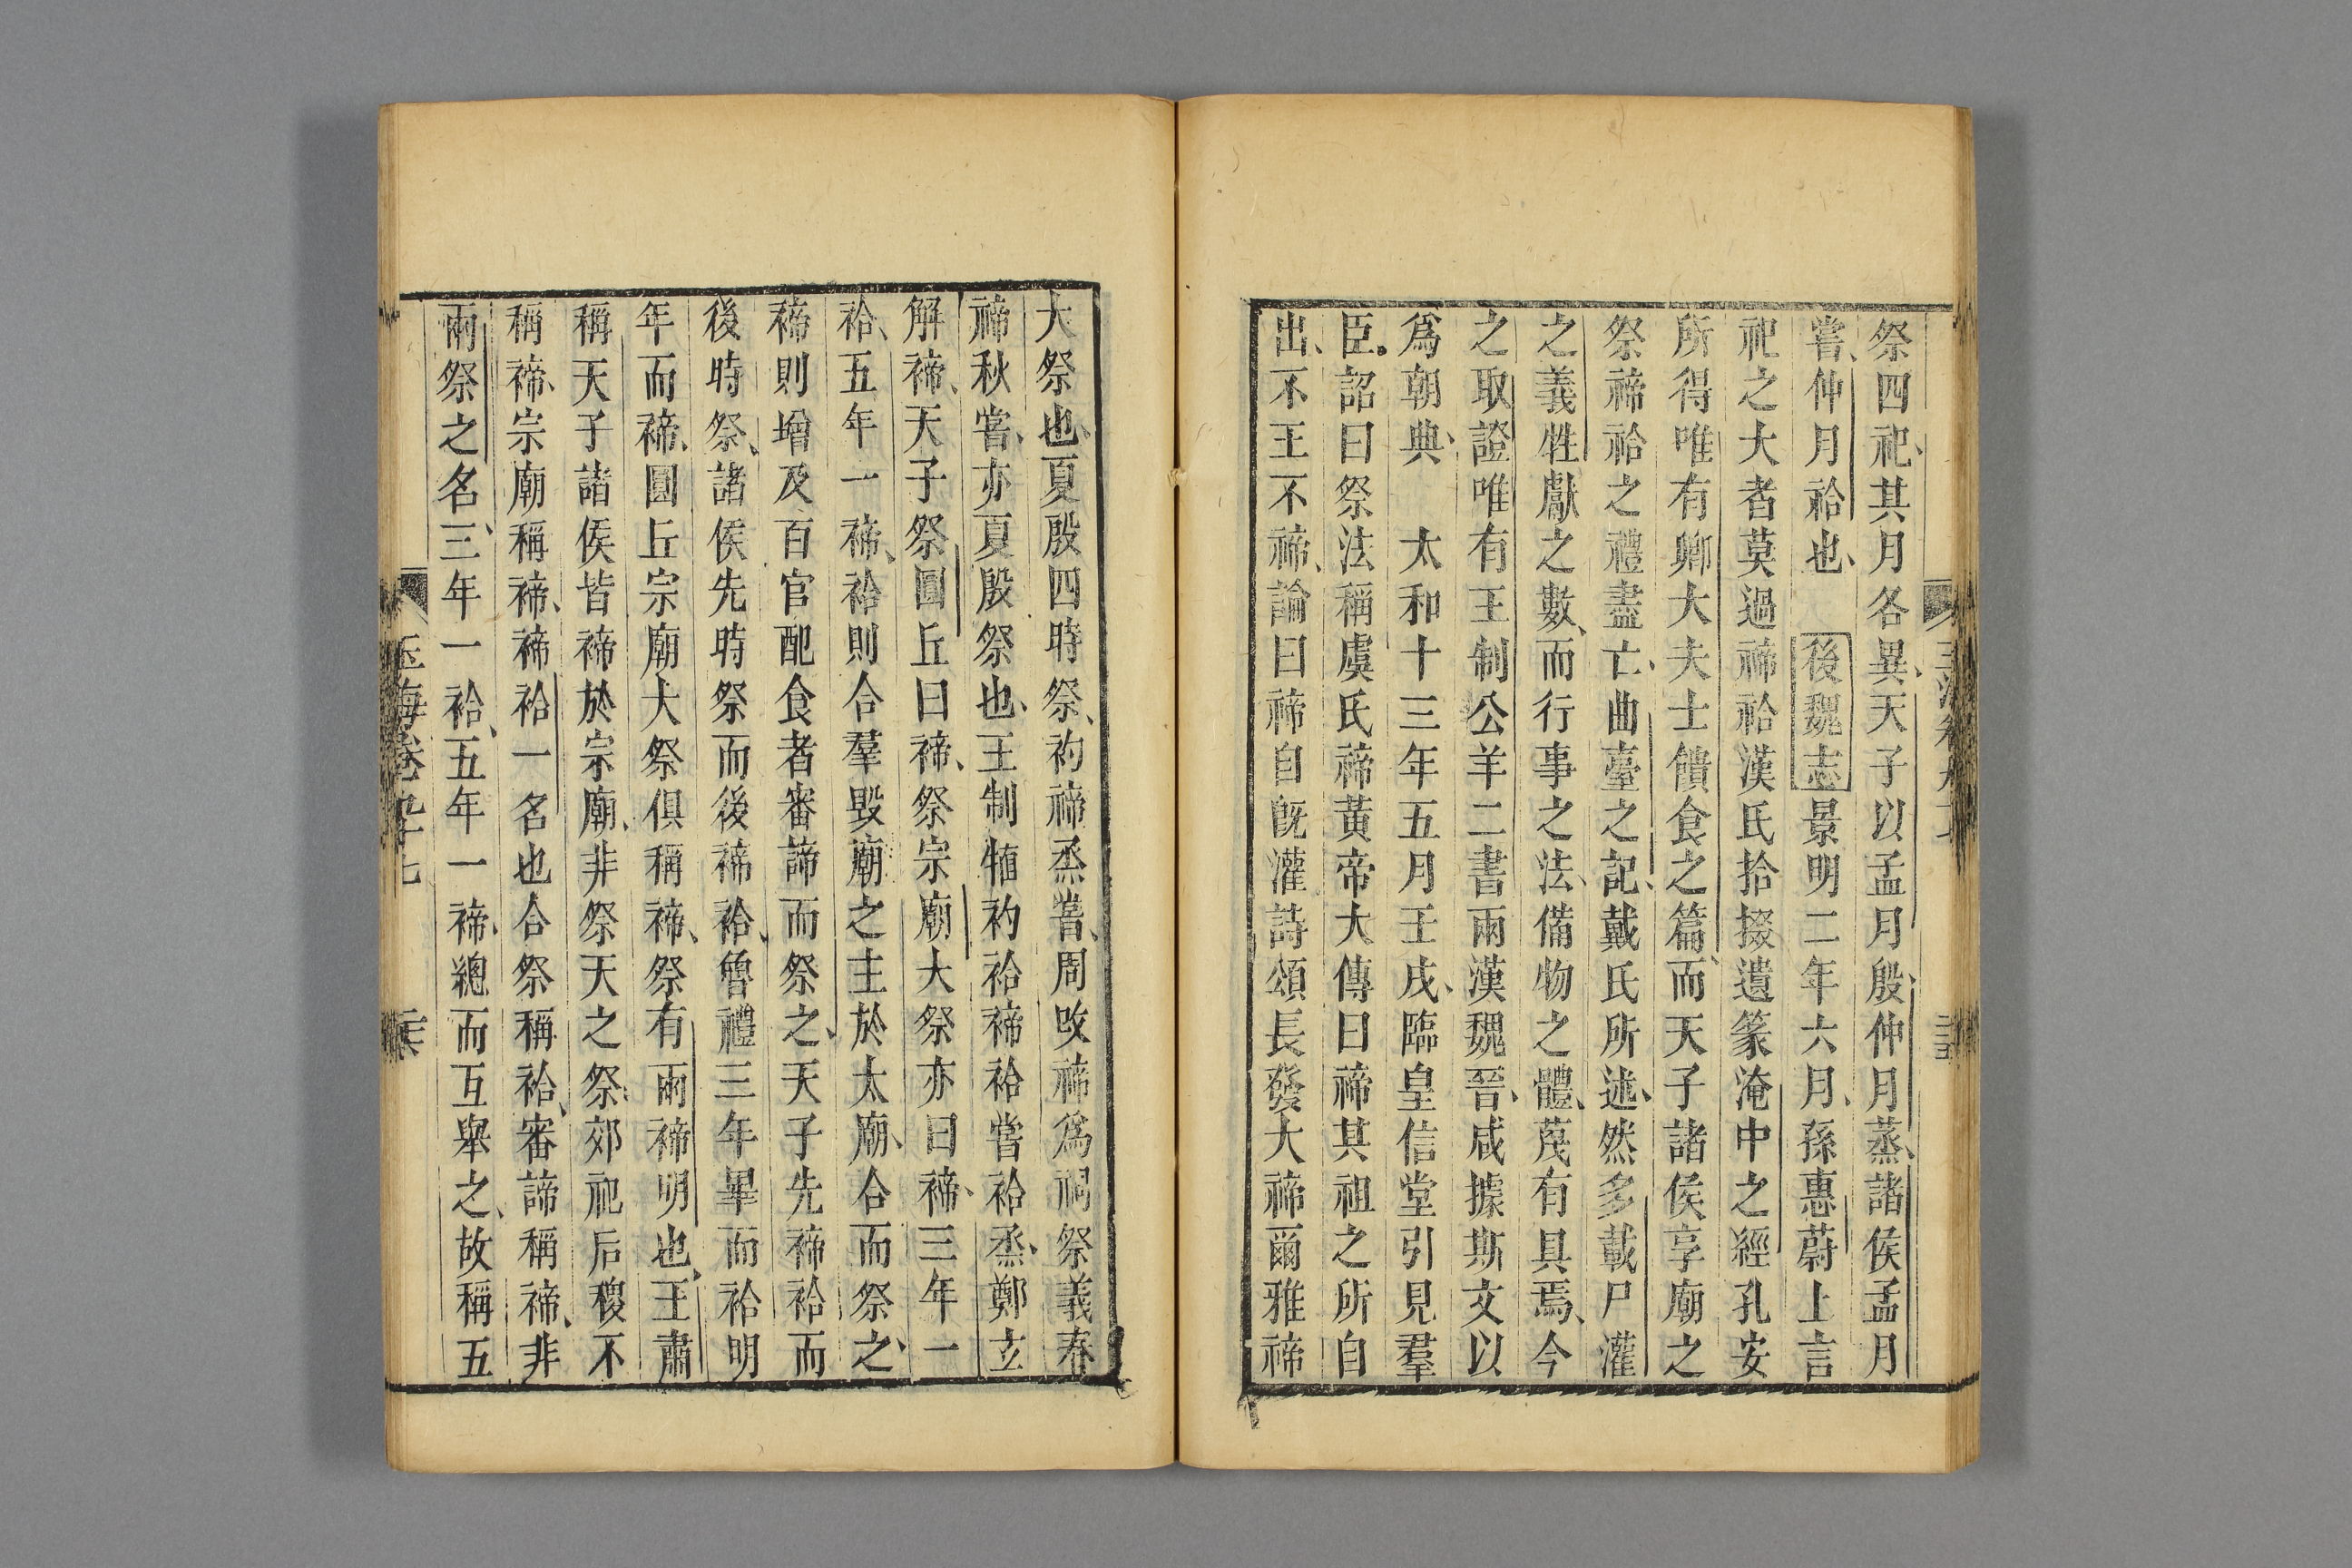 祭四祀、其月各異、天子以孟月殷仲月蒸、諸侯孟月
嘗、仲月祫也、後魏志景明二年六月、孫惠蔚上言
祀之大者莫過禘祫漢氏拾掇遺篆淹中之經孔安
所得唯有卿大夫士饋食之篇、而天子諸侯享廟之
祭禘祫之禮盡亡、曲臺之記、戴氏所述、然多載尸灌
之義牲獻之數、而行事之法、備物之體、蔑有具焉、今
之取證唯有王制公羊二書兩漢魏晉、咸據斯文以
爲朝典、太和十三年五月壬戌、臨皇信堂引見羣
臣。詔曰祭法稱虞氏禘黃帝大傳曰禘其祖之所自
出、不王不禘、論曰禘自旣灌詩頌長發大禘爾雅禘
大祭也、夏殷四時祭、礿禘烝嘗、周改禘爲祠祭義春
禘秋嘗、亦夏殷祭也、王制犆礿祫禘祫嘗祫烝、鄭玄
解禘、天子祭圓丘曰禘、祭宗廟大祭亦曰禘、三年一
祫、五年一禘、祫則合羣毀廟之主於太廟、合而祭之、
禘則增及百官配食者審諦而祭之、天子先禘祫而
後時祭、諸侯先時祭而後禘祫、魯禮三年畢而祫明
年而禘、圓丘宗廟大祭俱稱禘、祭有兩禘明也、王肅
稱天子諸侯皆禘於宗廟、非祭天之祭、郊祀后稷不
稱禘、宗廟稱禘、禘祫一名也合祭稱祫、審諦稱禘、非
兩祭之名、三年一祫、五年一禘、總而互舉之、故稱五
玉海卷九十七